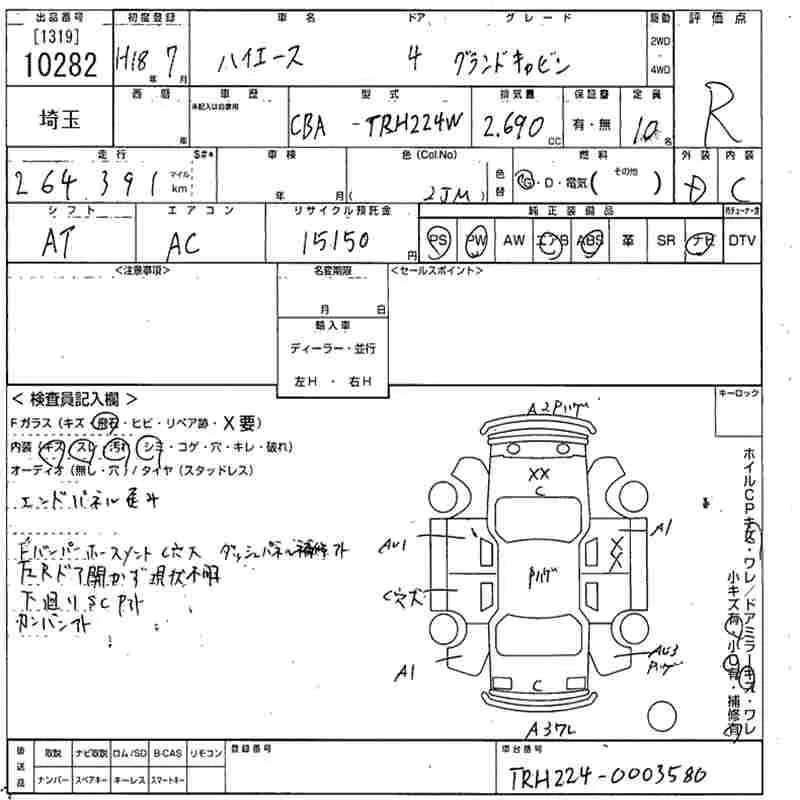 出品番号 初度登録 車名 ドア グレード 駆動 評価点
[1319]
10282 H18年 7月 ハイエース 4 グランドキャビン 2WD 4WD R
埼玉 西暦 年 車歴 未記入は自家用 型式 排気量 保証書 定員
CBA -TRH224W 2.690cc 有・無 10名
走行 車検 色(Col.No) 燃料 外装 内装
264391 マイル km 年 月 (2JM) 色替 G・D・電気( その他 ) D C
シフト エアコン リサイクル預託金 純正装備品
AT AC 15150円 PS PW AW エアB ABS 革 SR ナビ DTV
<注意事項> 名変期限 <セールスポイント>
月 日
輸入車
ディーラー・並行
左H ・ 右H
<検査員記入欄> キーロック
Fガラス(キズ・飛石・ヒビ・リペア跡・X要)
内装(キズ・スレ・汚れ・シミ・コゲ・穴・キレ・破れ)
オーディオ(無し・穴)/タイヤ(スタッドレス)
エンドパネル
Fバンパーホースメント C穴大 ダッシュパネル補修跡
左Rドア開かず現状不明
下廻りSCアト
カンバンアト
A2Pハゲ
XX
C
AU1
A1
XX
Pハゲ
C穴大
A1
AU3
Pハゲ
C
A3ワレ
ホイルCPキズ・ワレ/ドアミラーキズ・ワレ
小キズ有・小凹有・補修有
後送品 取説 ナビ取説 ロム/SD B-CAS リモコン 登録番号 車台番号
ナンバー スペアキー キーレス スマートキー TRH224-0003580